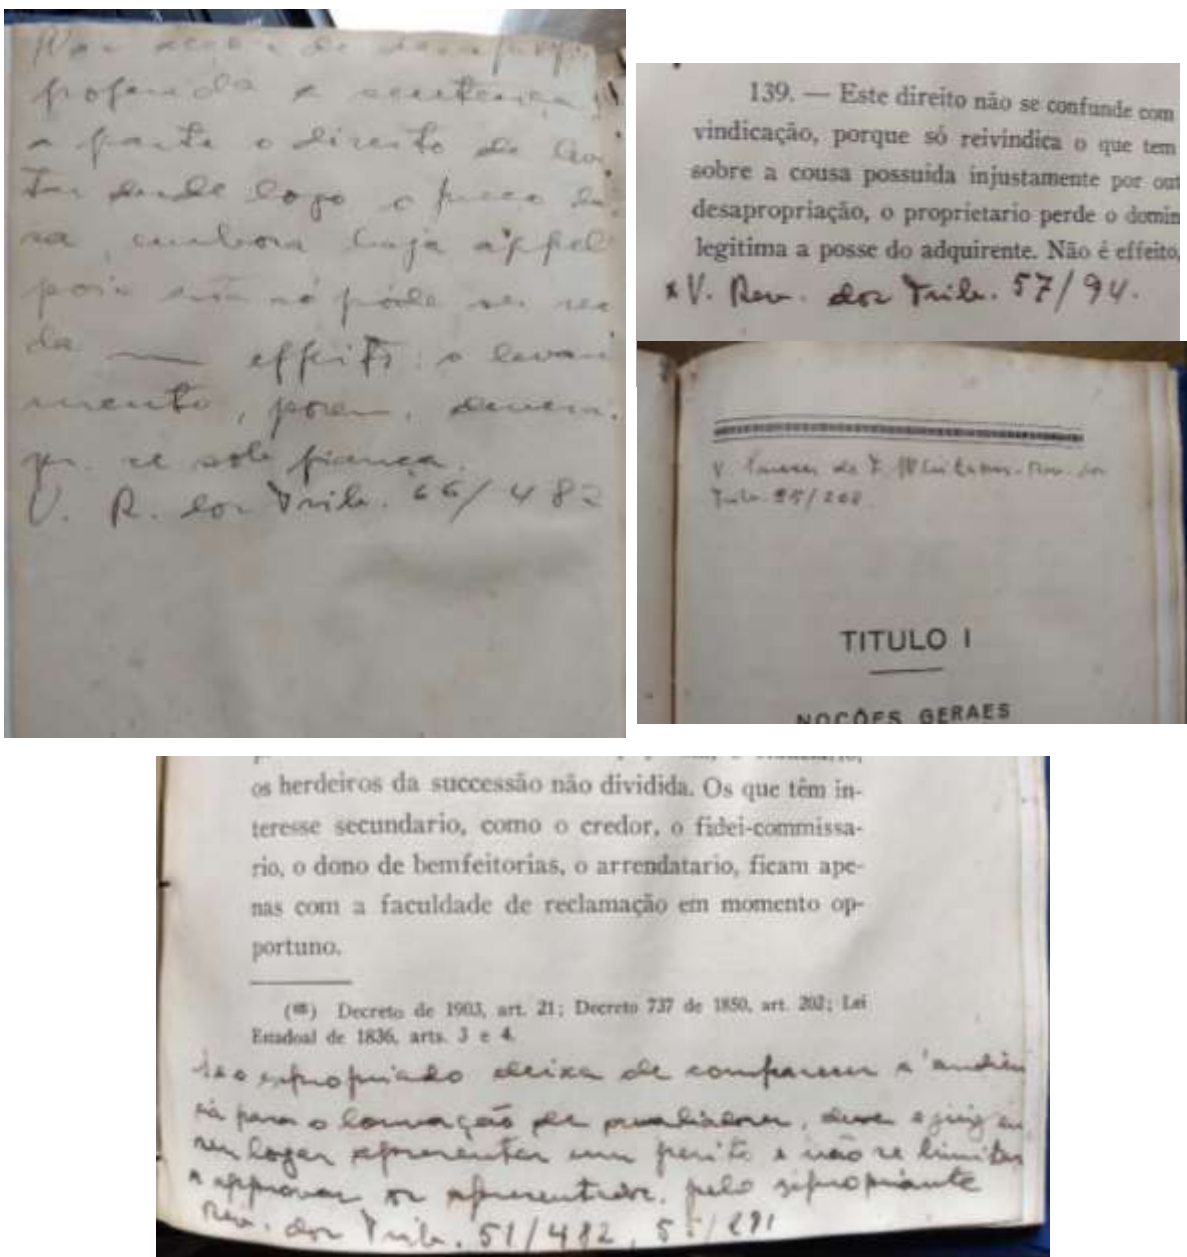 Nas acções de desaprop.
proferida a sentença,
a parte o direito de
tar desde logo o preço
sa, embora haja appel
pois esta só póde ser rec
da — effeito: o levan
mento, porem, 
se sob fiança.
V. R. dos Trib. 66/482
139. — Este direito não se confunde com
vindicação, porque só reivindica o que tem
sobre a cousa possuida injustamente por out
desapropriação, o proprietario perde o domin
legitima a posse do adquirente. Não é effeito,
x V. Rev. dos Trib. 57/94.
V. de F. Rev. dos
Trib. 95/268.
TITULO I
NOÇÕES GERAES
os herdeiros da successão não dividida. Os que têm in-
teresse secundario, como o credor, o fidei-commissa-
rio, o dono de bemfeitorias, o arrendatario, ficam ape-
nas com a faculdade de reclamação em momento op-
portuno.
Decreto de 1903, art. 21; Decreto 737 de 1850, art. 202; Lei
Estadoal de 1836, arts. 3 e 4.
Se o expropriado deixa de comparecer a' audien
cia para a louvação de avaliadores, deve o juiz em
seu logar apresentar um perito e não se limitar
a approvar os apresentados pelo expropriante
Rev. dos Trib. 51/482, 55/291